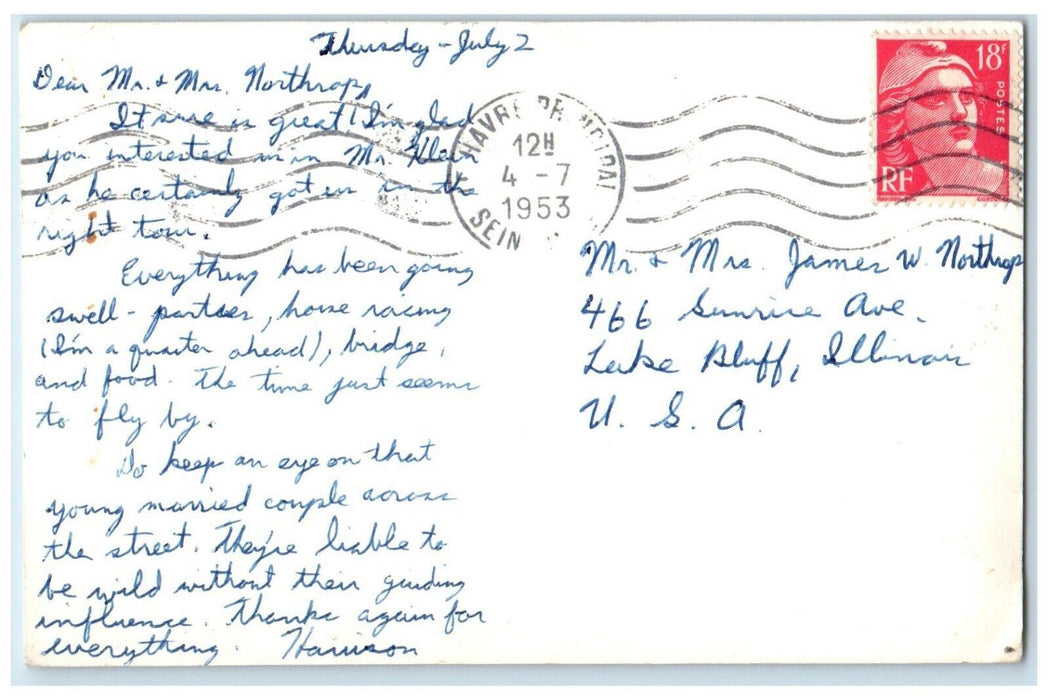 Thursday - July 2
Dear Mr. & Mrs. Northrop,
It sure is great! I'm glad
you interested us in Mr. Klein
as he certainly got us in the
right tour.
Everything has been going
swell - parties, horse racing
(I'm a quarter ahead), bridge,
and food. The time just seems
to fly by.
Do keep an eye on that
young married couple across
the street. They're liable to
be wild without their guiding
influence. Thanks again for
everything. Harrison
HAVRE PRINCIPAL
12H
4 - 7
1953
SEINE
18F
POSTES
RF
GANDON
Mr. & Mrs. James W. Northrop
466 Sunrise Ave.
Lake Bluff, Illinois
U. S. A.